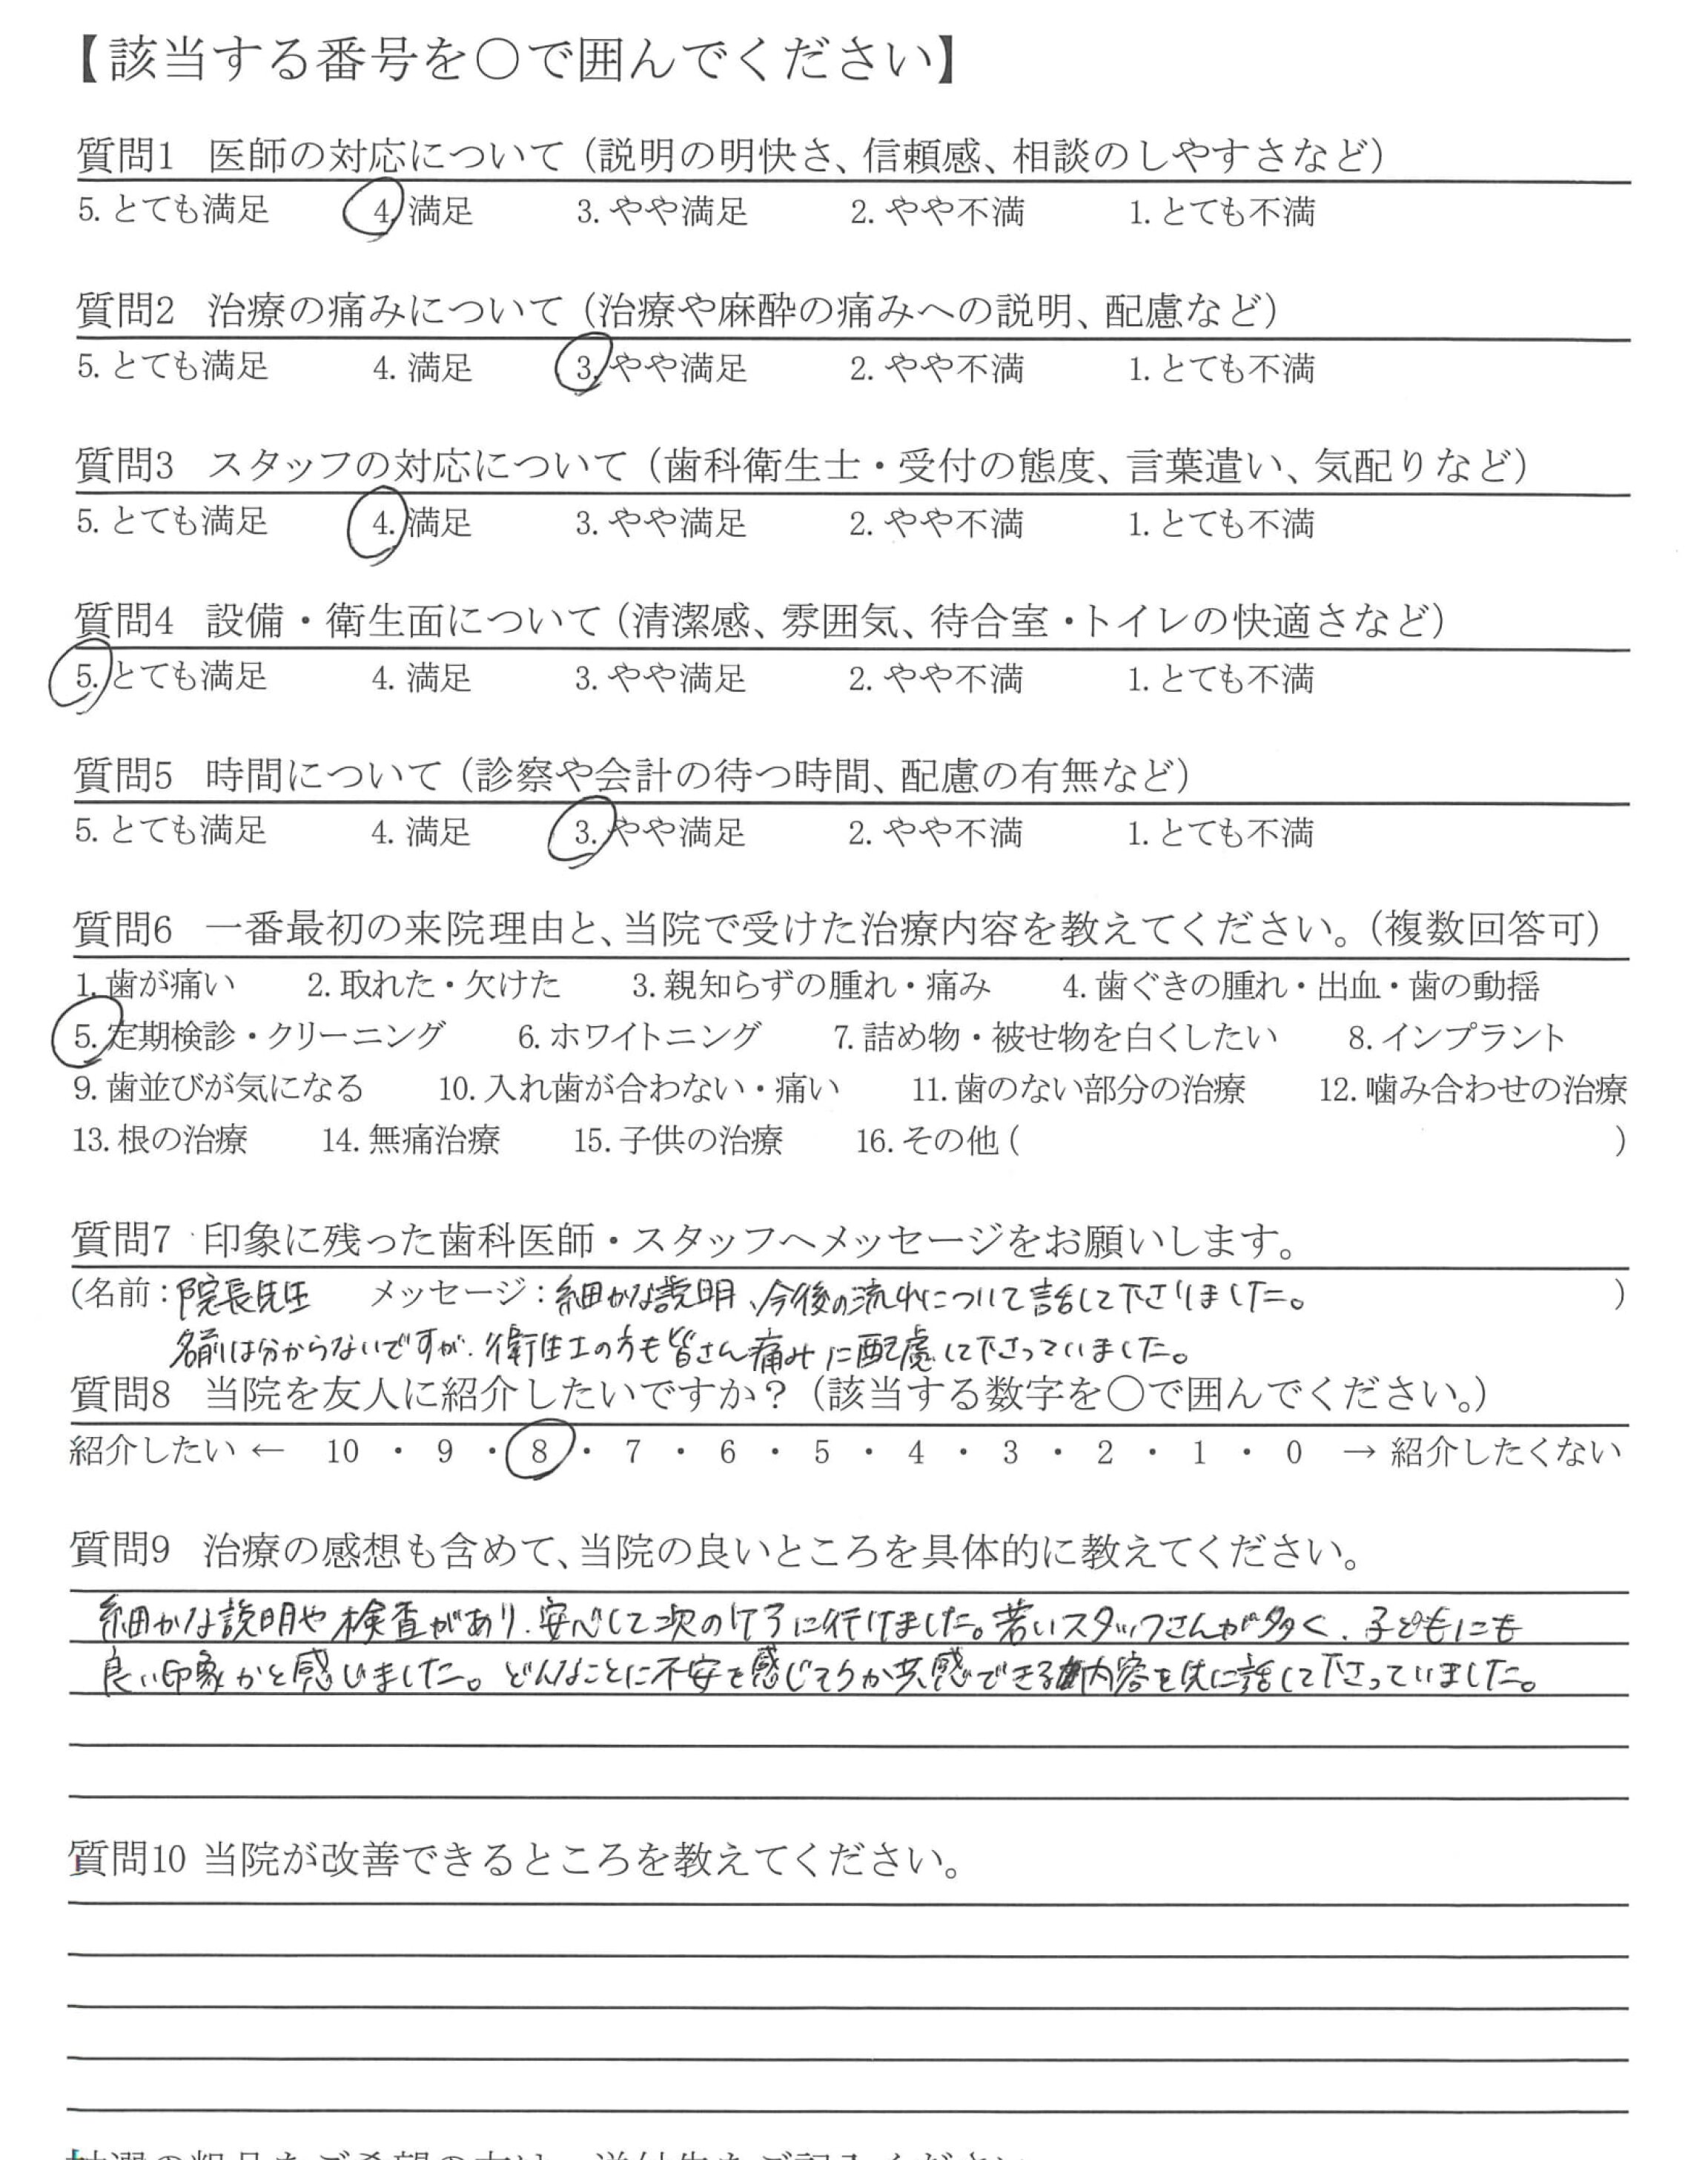 【該当する番号を〇で囲んでください】
質問1 医師の対応について（説明の明快さ、信頼感、相談のしやすさなど）
5. とても満足 4. 満足 3. やや満足 2. やや不満 1. とても不満
質問2 治療の痛みについて（治療や麻酔の痛みへの説明、配慮など）
5. とても満足 4. 満足 3. やや満足 2. やや不満 1. とても不満
質問3 スタッフの対応について（歯科衛生士・受付の態度、言葉遣い、気配りなど）
5. とても満足 4. 満足 3. やや満足 2. やや不満 1. とても不満
質問4 設備・衛生面について（清潔感、雰囲気、待合室・トイレの快適さなど）
5. とても満足 4. 満足 3. やや満足 2. やや不満 1. とても不満
質問5 時間について（診察や会計の待つ時間、配慮の有無など）
5. とても満足 4. 満足 3. やや満足 2. やや不満 1. とても不満
質問6 一番最初の来院理由と、当院で受けた治療内容を教えてください。（複数回答可）
1. 歯が痛い 2. 取れた・欠けた 3. 親知らずの腫れ・痛み 4. 歯ぐきの腫れ・出血・歯の動揺
5. 定期検診・クリーニング 6. ホワイトニング 7. 詰め物・被せ物を白くしたい 8. インプラント
9. 歯並びが気になる 10. 入れ歯が合わない・痛い 11. 歯のない部分の治療 12. 噛み合わせの治療
13. 根の治療 14. 無痛治療 15. 子供の治療 16. その他（ ）
質問7 印象に残った歯科医師・スタッフへメッセージをお願いします。
（名前：院長先生 メッセージ：細かな説明、今後の流れについて話して下さりました。 ）
名前は分からないですが、衛生士の方も皆さん痛みに配慮して下さっていました。
質問8 当院を友人に紹介したいですか？（該当する数字を〇で囲んでください。）
紹介したい ← 10 ・ 9 ・ 8 ・ 7 ・ 6 ・ 5 ・ 4 ・ 3 ・ 2 ・ 1 ・ 0 → 紹介したくない
質問9 治療の感想も含めて、当院の良いところを具体的に教えてください。
細かな説明や検査があり、安心して次のケアに行けました。若いスタッフさんが多く、子どもにも
良い印象かと感じました。どんなことに不安を感じてるか共感できる内容を先に話して下さっていました。
質問10 当院が改善できるところを教えてください。